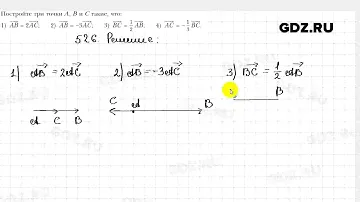 GDZ.RU
Постройте три точки A, B и C такие, что:
1) AB = 2AC. 2) AB = -3AC. 3) BC = 1/2 AB. 4) AC = -1/3 BC.
526. Решение:
1) AB = 2AC 2) AB = -3AC 3) BC = 1/2 AB
A C B
C A B
B